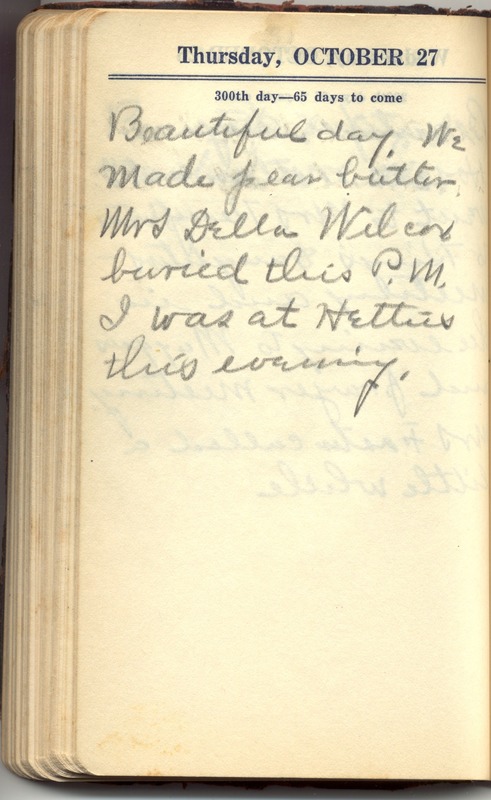 Thursday, OCTOBER 27
300th day—65 days to come
Beautiful day. We
made pear butter.
Mrs Della Wilcox
buried this P.M.
I was at Hetties
this evening.